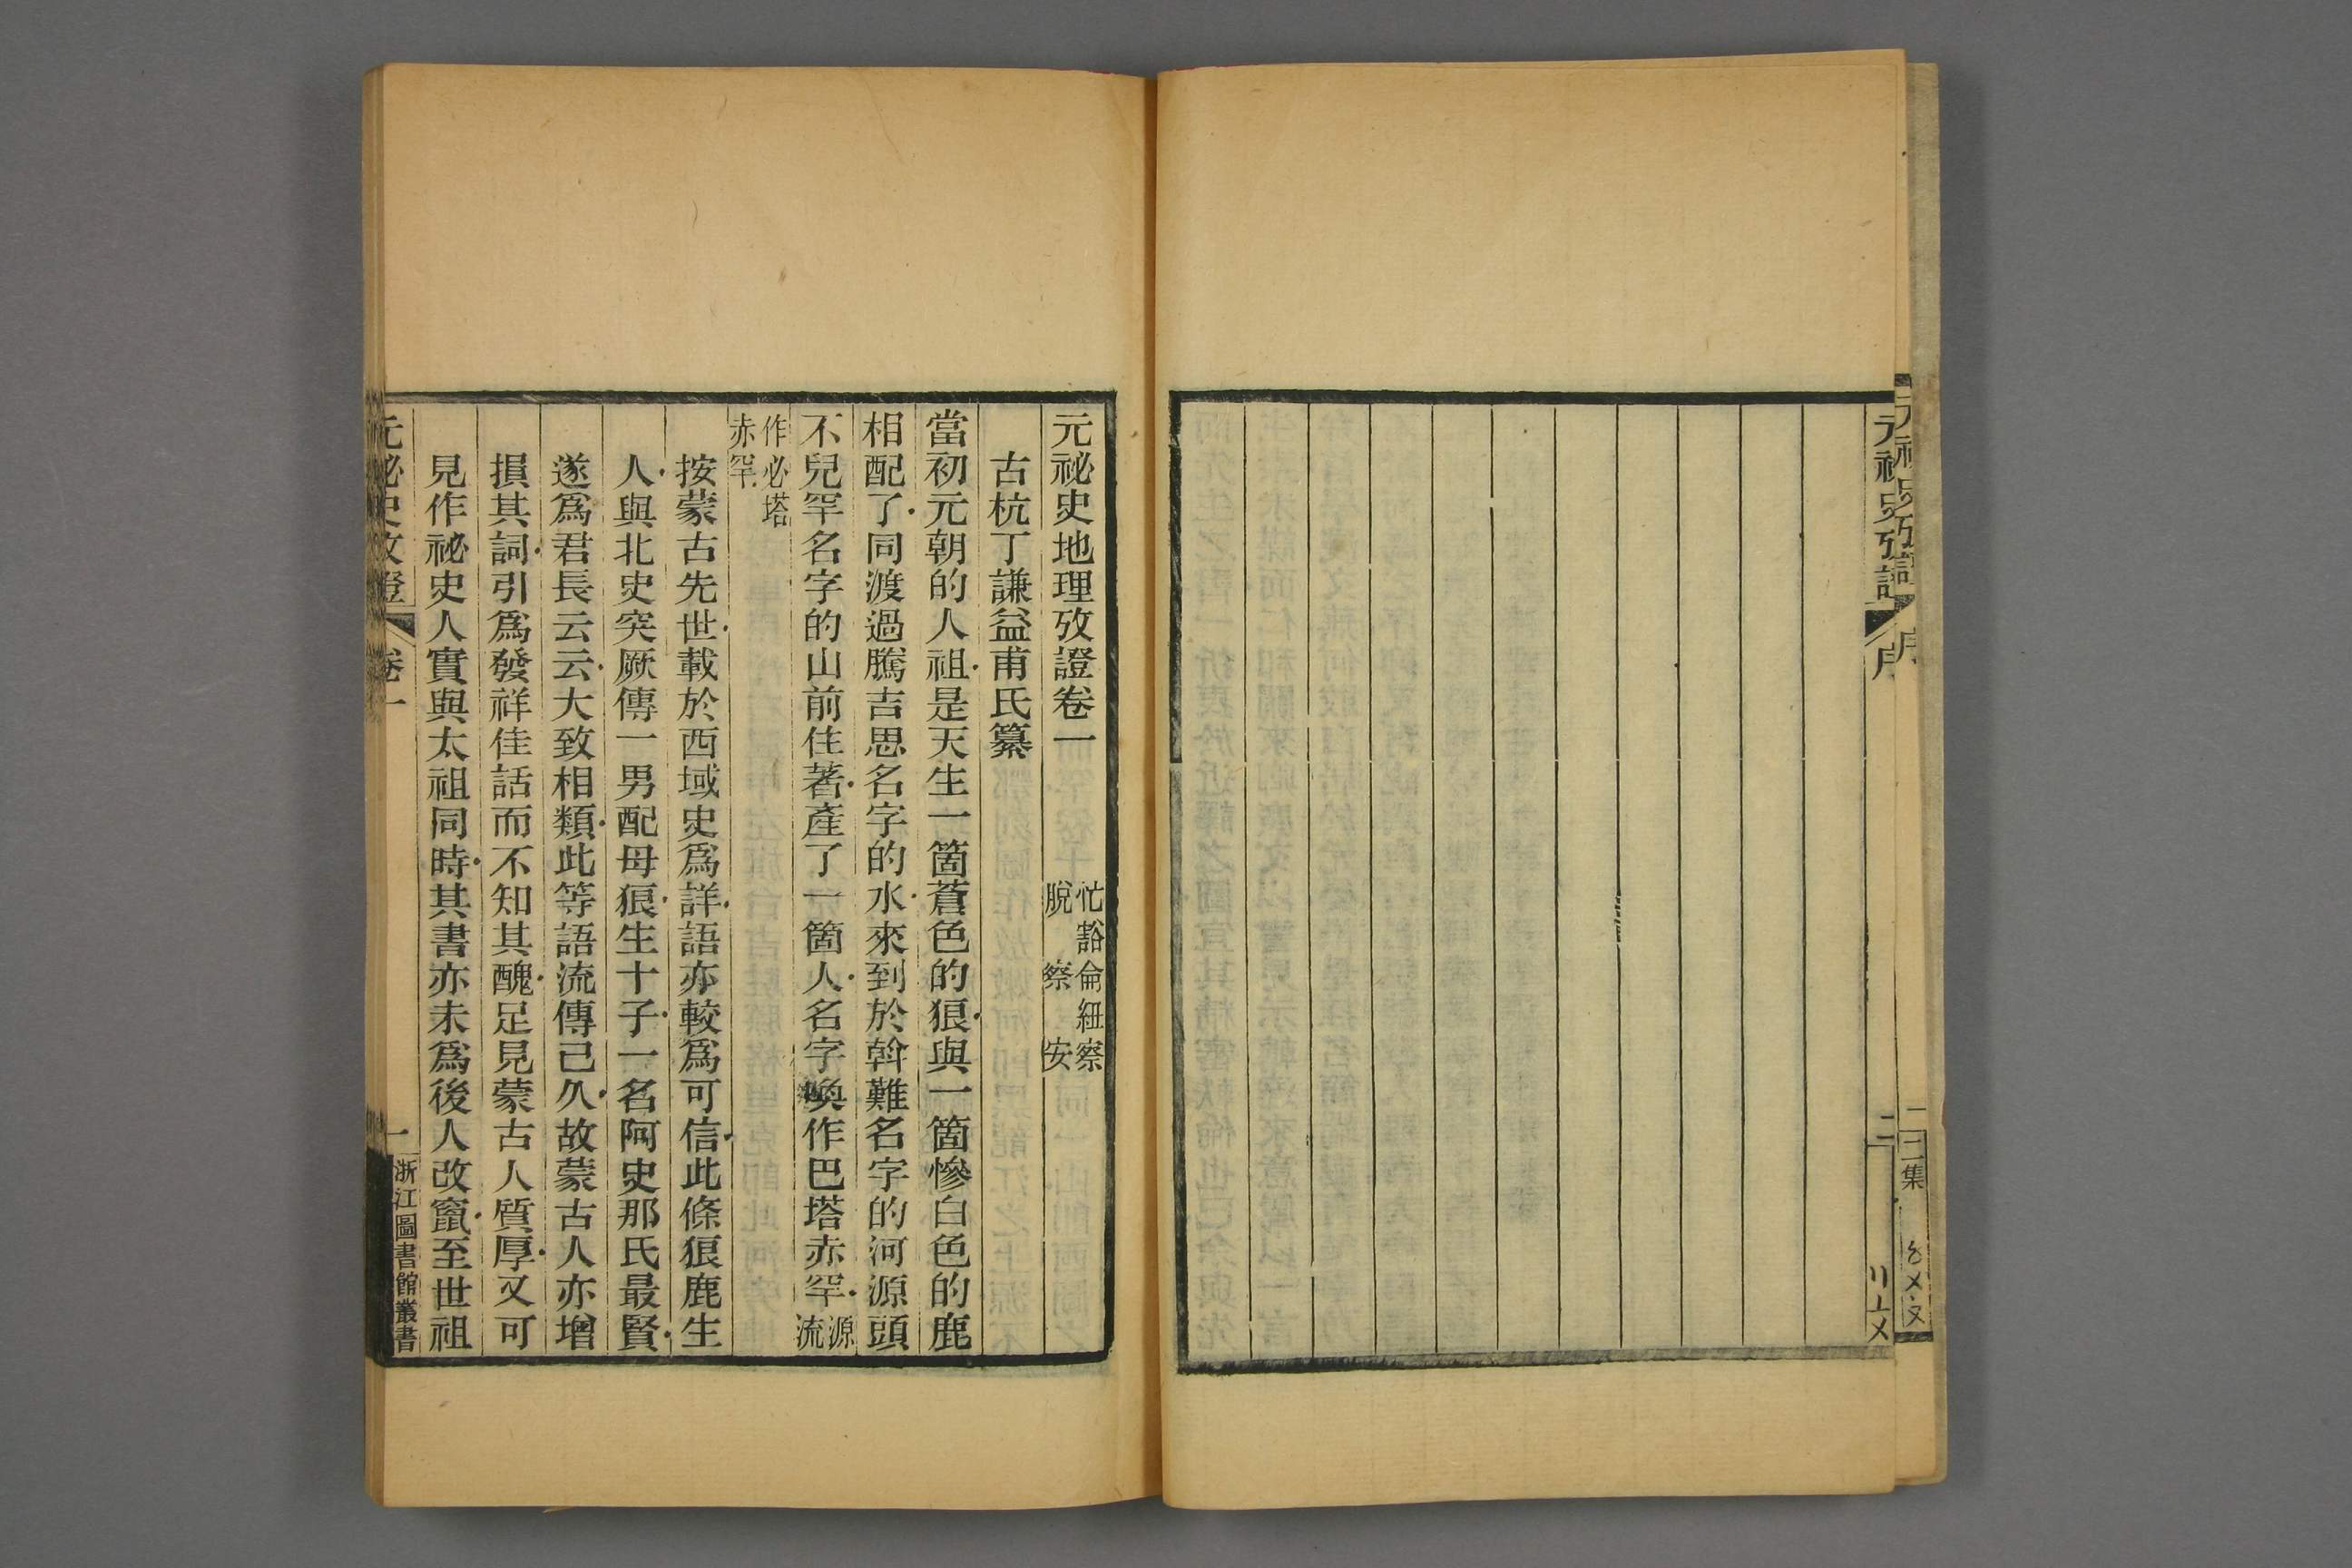 元祕史地理攷證卷一　忙豁侖紐察
脫察安
古杭丁謙益甫氏纂
當初元朝的人祖是天生一箇蒼色的狼與一箇慘白色的鹿
相配了同渡過騰吉思名字的水來到於斡難名字的河源頭
不兒罕名字的山前住著產了一箇人名字喚作巴塔赤罕源
流
作必塔
赤罕
按蒙古先世載於西域史爲詳語亦較爲可信此條狼鹿生
人與北史突厥傳一男配母狼生十子一名阿史那氏最賢
遂爲君長云云大致相類此等語流傳已久故蒙古人亦增
損其詞引爲發祥佳話而不知其醜足見蒙古人質厚又可
見作祕史人實與太祖同時其書亦未爲後人改竄至世祖
元祕史攷證　卷一　一　浙江圖書館叢書
元祕史攷證　序　二
二集